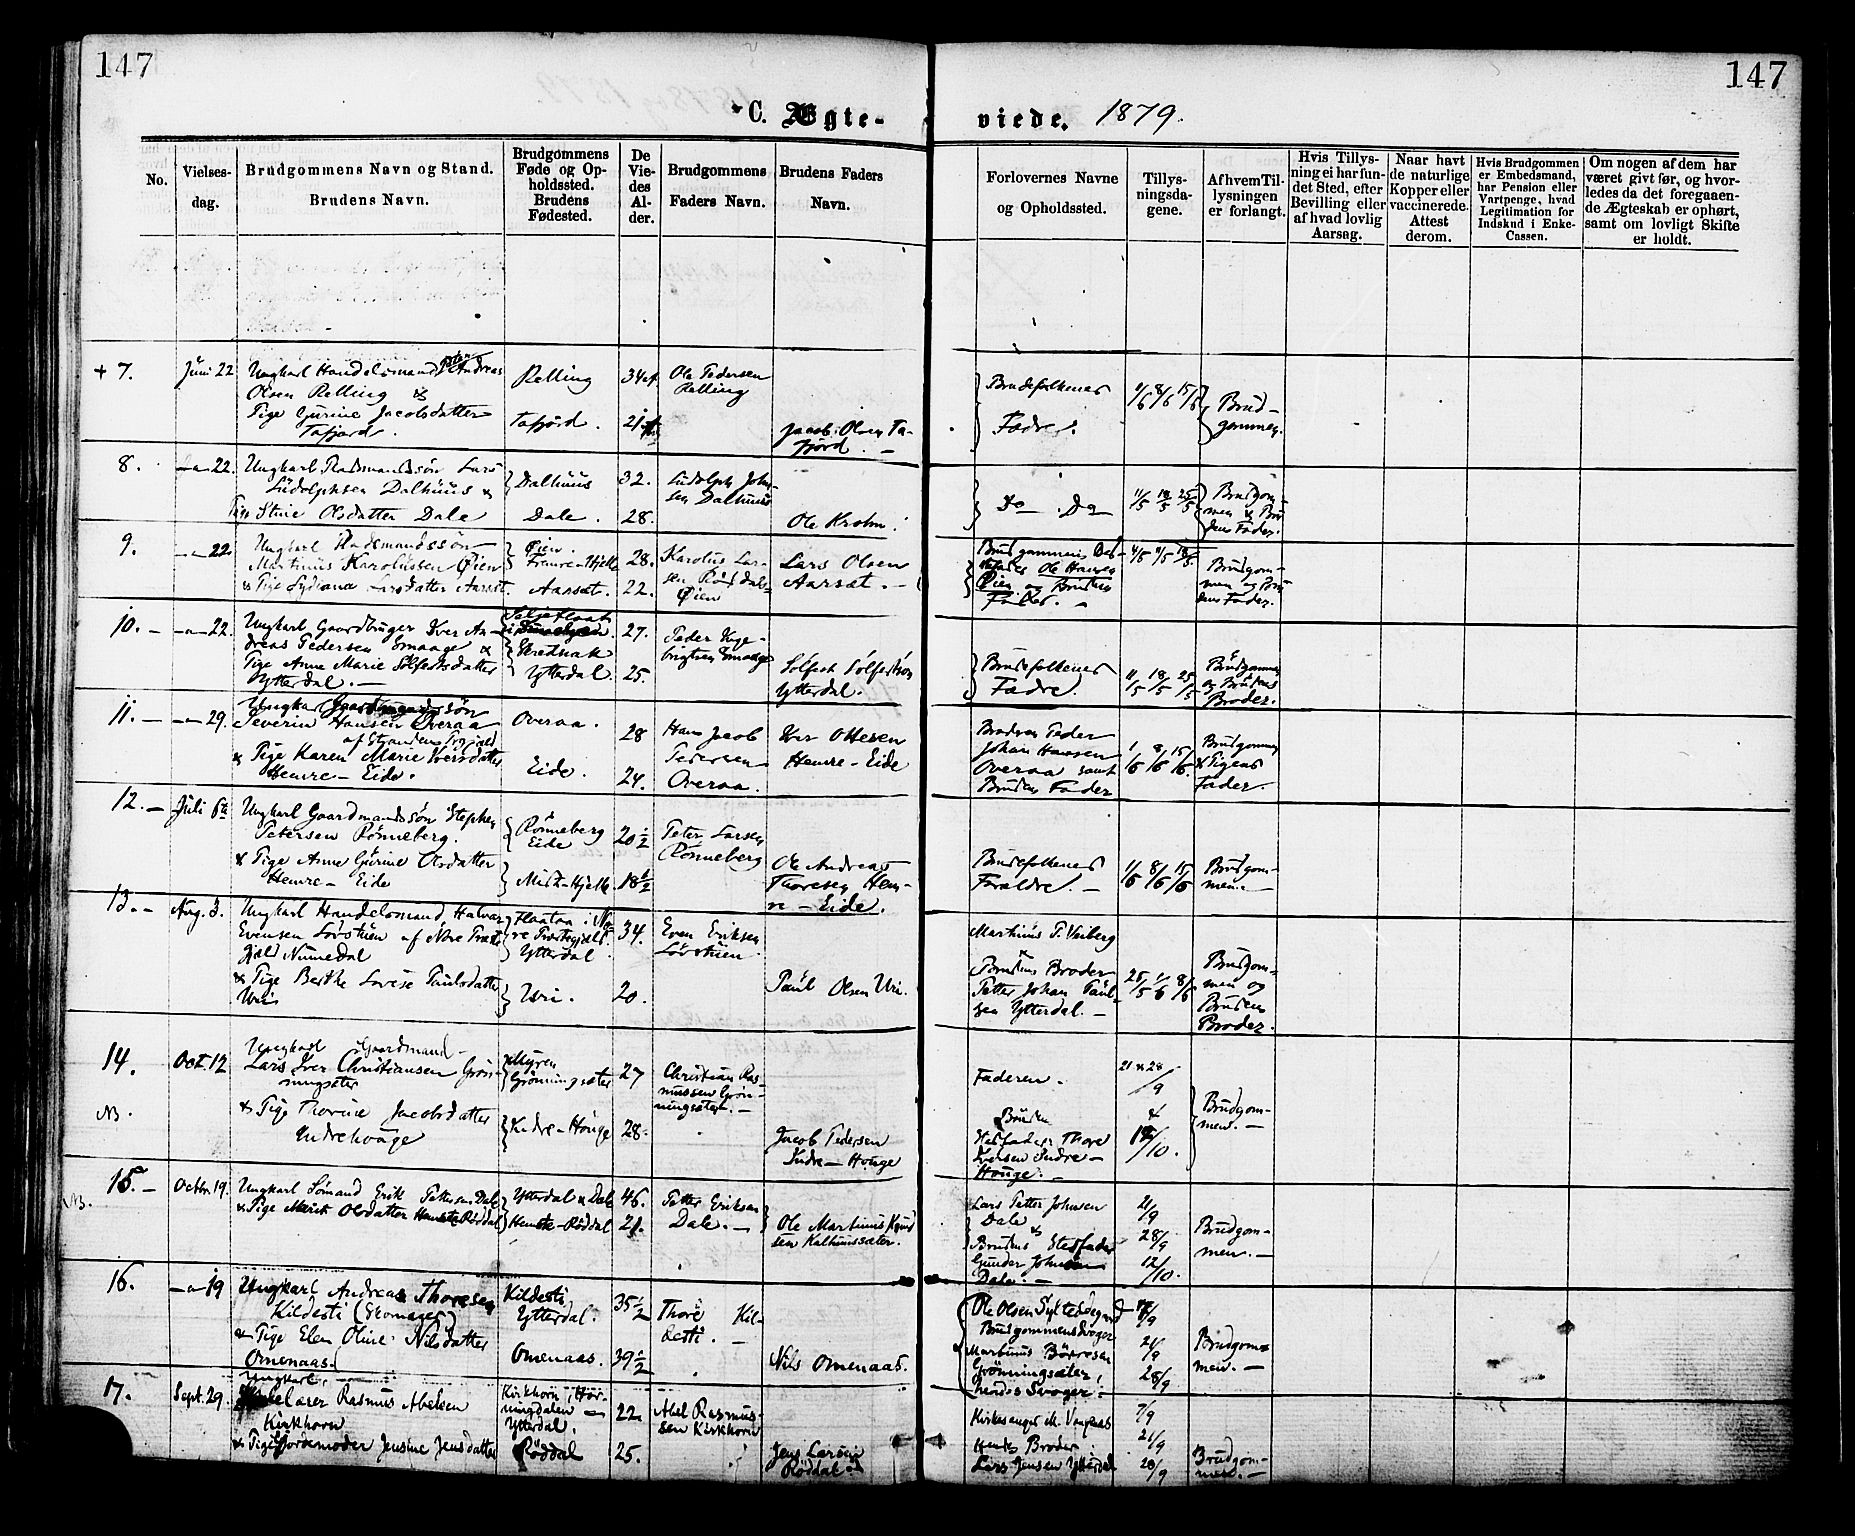 147
147
C. Ægte-
viede. 1879.
No.
Vielses-
dag.
Brudgommens Navn og Stand.
Brudens Navn.
Brudgommens
Føde og Op-
holdssted.
Brudens
Fødested.
De
Vie-
des
Al-
der.
Brudgommens
Faders Navn.
Brudens Faders
Navn.
Forlovernes Navne
og Opholdssted.
Tillys-
ningsda-
gene.
Af hvem Til-
lysningen
er forlangt.
Hvis Tillys-
ning ei har fun-
det Sted, efter
Bevilling eller
af hvad lovlig
Aarsag.
Naar havt
de naturlige
Kopper eller
vaccinerede.
Attest
derom.
Hvis Brudgommen
er Embedsmand,
har Pension eller
Vartpenge, hvad
Legitimation for
Indskud i Enke-
Cassen.
Om nogen af dem har
været givt før, og hvor-
ledes da det foregaaen-
de Ægteskab er ophørt,
samt om lovligt Skifte
er holdt.
+ 7.
Juni 22
Ungkarl Handelsmand Andreas
Olsen Relling &
Pige Gurine Jacobsdatter
Tafjord.
Relling
Tafjord.
34
21
Ole Pedersen
Relling
Jacob Olsen Ta-
fjord. -
Brudefolkenes
Fædre.
11/6 8/6 15/6
Brud-
gommen.
8.
-"- 22.
Ungkarl Gaardmandssøn Lars
Ludolphsen Dalhuus &
Pige Stine Olsdatter Dale
Dalhuus
Dale.
32.
28.
Ludolph John-
sen Dalhuus
Ole Krohn.
Do Do
11/5 18/5 25/5
Brudgom-
men & Bru-
dens Fader.
9.
-"- 22.
Ungkarl Gaardmandssøn
Martinus Karolussen Øien
& Pige Lydiana Larsdatter Aarset.
Øien.
Aarset.
28.
22.
Karolus Lar-
sen
Øien
Lars Olsen
Aarsæt. -
Brudgommens
Ole Hansen
Øien og Brudens
Fader. -
4/5 11/5 18/5
Brudgom-
men og Bru-
dens Fader.
10. -
-"- 22.
Ungkarl Gaardbruger Iver An-
dreas Pedersen Smaage &
Pige Anne Marie Solfestsdatter
Ytterdal. -
Ytterdal
27.
25.
Peder Inge-
brigtsen Smaage
Solfest Solfestsøn
Ytterdal.
Brudefolkenes
Fædre.
11/5 18/5 25/5
Brudgommen
og Brudens
Broder.
11. -
-"- 29.
Ungkar Gaardmandssøn
Severin Hansen Overaa
af Stranden Prgjæld
& Pige Karen Marie Iversdatter
Hemre-Eide.
Overaa.
Eide.
28
24.
Hans Jacob
Petersen
Overaa.
Iver Ottesen
Hemre-Eide
Brodren Peder
Johan Hansen
Overaa samt
Brudens Fader
1/6 8/6 15/6.
Brudgommen
& Pigens
Fader.
12. -
Juli 6te
Ungkarl Gaardmandssøn Stephen
Petersen Rønneberg.
& Pige Anne Gurine Olsdatter
Hemre-Eide
Rønneberg
Eide
20 1/2
18 1/2
Peter Larsen
Rønneberg
Ole Andreas
Thoresen Hem-
re-Eide.
Brudefolkenes
Forældre. -
1/6 8/6 15/6
Brudgom-
men. -
13. -
Aug. 3.
Ungkarl Handelsmand Halvar
Evensen Løvstuen af Nore Præste-
gjæld Numedal
& Pige Berthe Lovise Paulsdatter
Uri
Flaataa i No-
re Præstegjæld.
Ytterdal
Uri.
34.
20.
Even Eriksen
Løvstuen.
Paul Olsen Uri.
Martinus P. Veiberg
&
Brudens Broder
Petter Johan Paul-
sen Ytterdal. -
25/5 1/6 8/6
Brudgom-
men og
Brudens
Broder.
14.
NB.
Oct. 12
Ungkarl Gaardmand
Lars Iver Christiansen Grøn-
ningsæter
& Pige Thorine Jacobsdatter
Indrehouge
Myren
Grønningsæter
Indre-Houge
27
28.
Christian Ras-
mussen Grøn-
ningsæter. -
Jacob Pedersen
Indre-Houge
Faderen.
Brudens
Stedfader Thore
Iversen Indre-
Houge. -
21 & 28/9
&
12/10.
Brudgom-
men. -
15. -
NB.
Octbr. 19.
Ungkarl Sømand Erik Pettersen Dale
& Pige Marit Olsdatter Røddal
Ytterdal & Dale
Røddal
46.
21.
Petter Eriksen
Dale. -
Ole Martinus Knud-
sen Kalhussæter.
Lars Petter Johnsen
Dale
&
Brudens Stedfader
Gunder Johnsen
Dale. -
21/9
28/9
12/10.
Brudgom-
men. -
16.
-"- 19
Ungkarl Andreas Thoresen
Kildesti (Skomager)
& Pige Elen Oline Nilsdatter
Omenaas.
Kildesti
Ytterdal.
Omenaas.
35 1/2
39 1/2
Thore Kil-
desti. -
Nils Omenaas.
Ole Olsen Syltesdegaard
Brudgommens Svoger
& Martinus Børresen
Grønningsæter,
hendes Svoger.
21/9
28/9
Brudgom-
men. -
17.
Sept. 29.
Ungkarl,
Rasmus Abelsen
Kirkhorn
& Pige Jordemoder Jensine Jensdatter
Kirkhorn i Hor-
ningdalen
Ytterdal.
Røddal
22.
25.
Abel Rasmus-
sen Kirkhorn
Jens Larsen
Røddal
Kirkesanger
Hendes Broder
Lars Jensen Ytterdal
7/9
21/9
28/9
Brudgom-
men. -